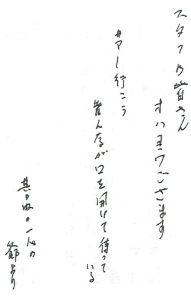 スタッフの皆さん
オハヨウございます
サアー行こう
皆んなが口を開けて待って
いる
其の内の一人の
爺より